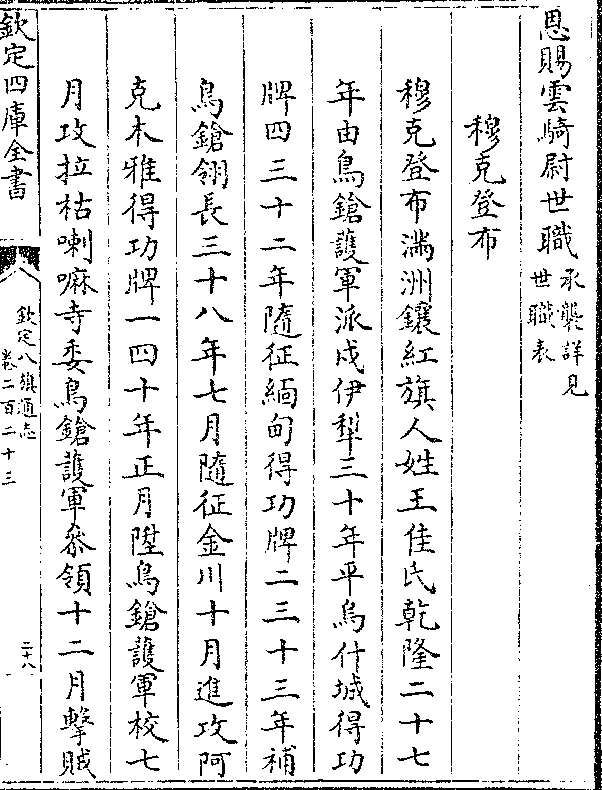 恩賜雲騎尉世職承襲詳見世職表
穆克登布
穆克登布滿洲鑲紅旗人姓王佳氏乾隆二十七
年由鳥鎗護軍派戍伊犁三十年平烏什城得功
牌四三十二年隨征緬甸得功牌二三十三年補
鳥鎗翎長三十八年七月隨征金川十月進攻阿
克木雅得功牌一四十年正月陞鳥鎗護軍校七
月攻拉枯喇嘛寺委鳥鎗護軍叅領十二月擊賊
欽定四庫全書
欽定八旗通志
卷二百二十三
二十八